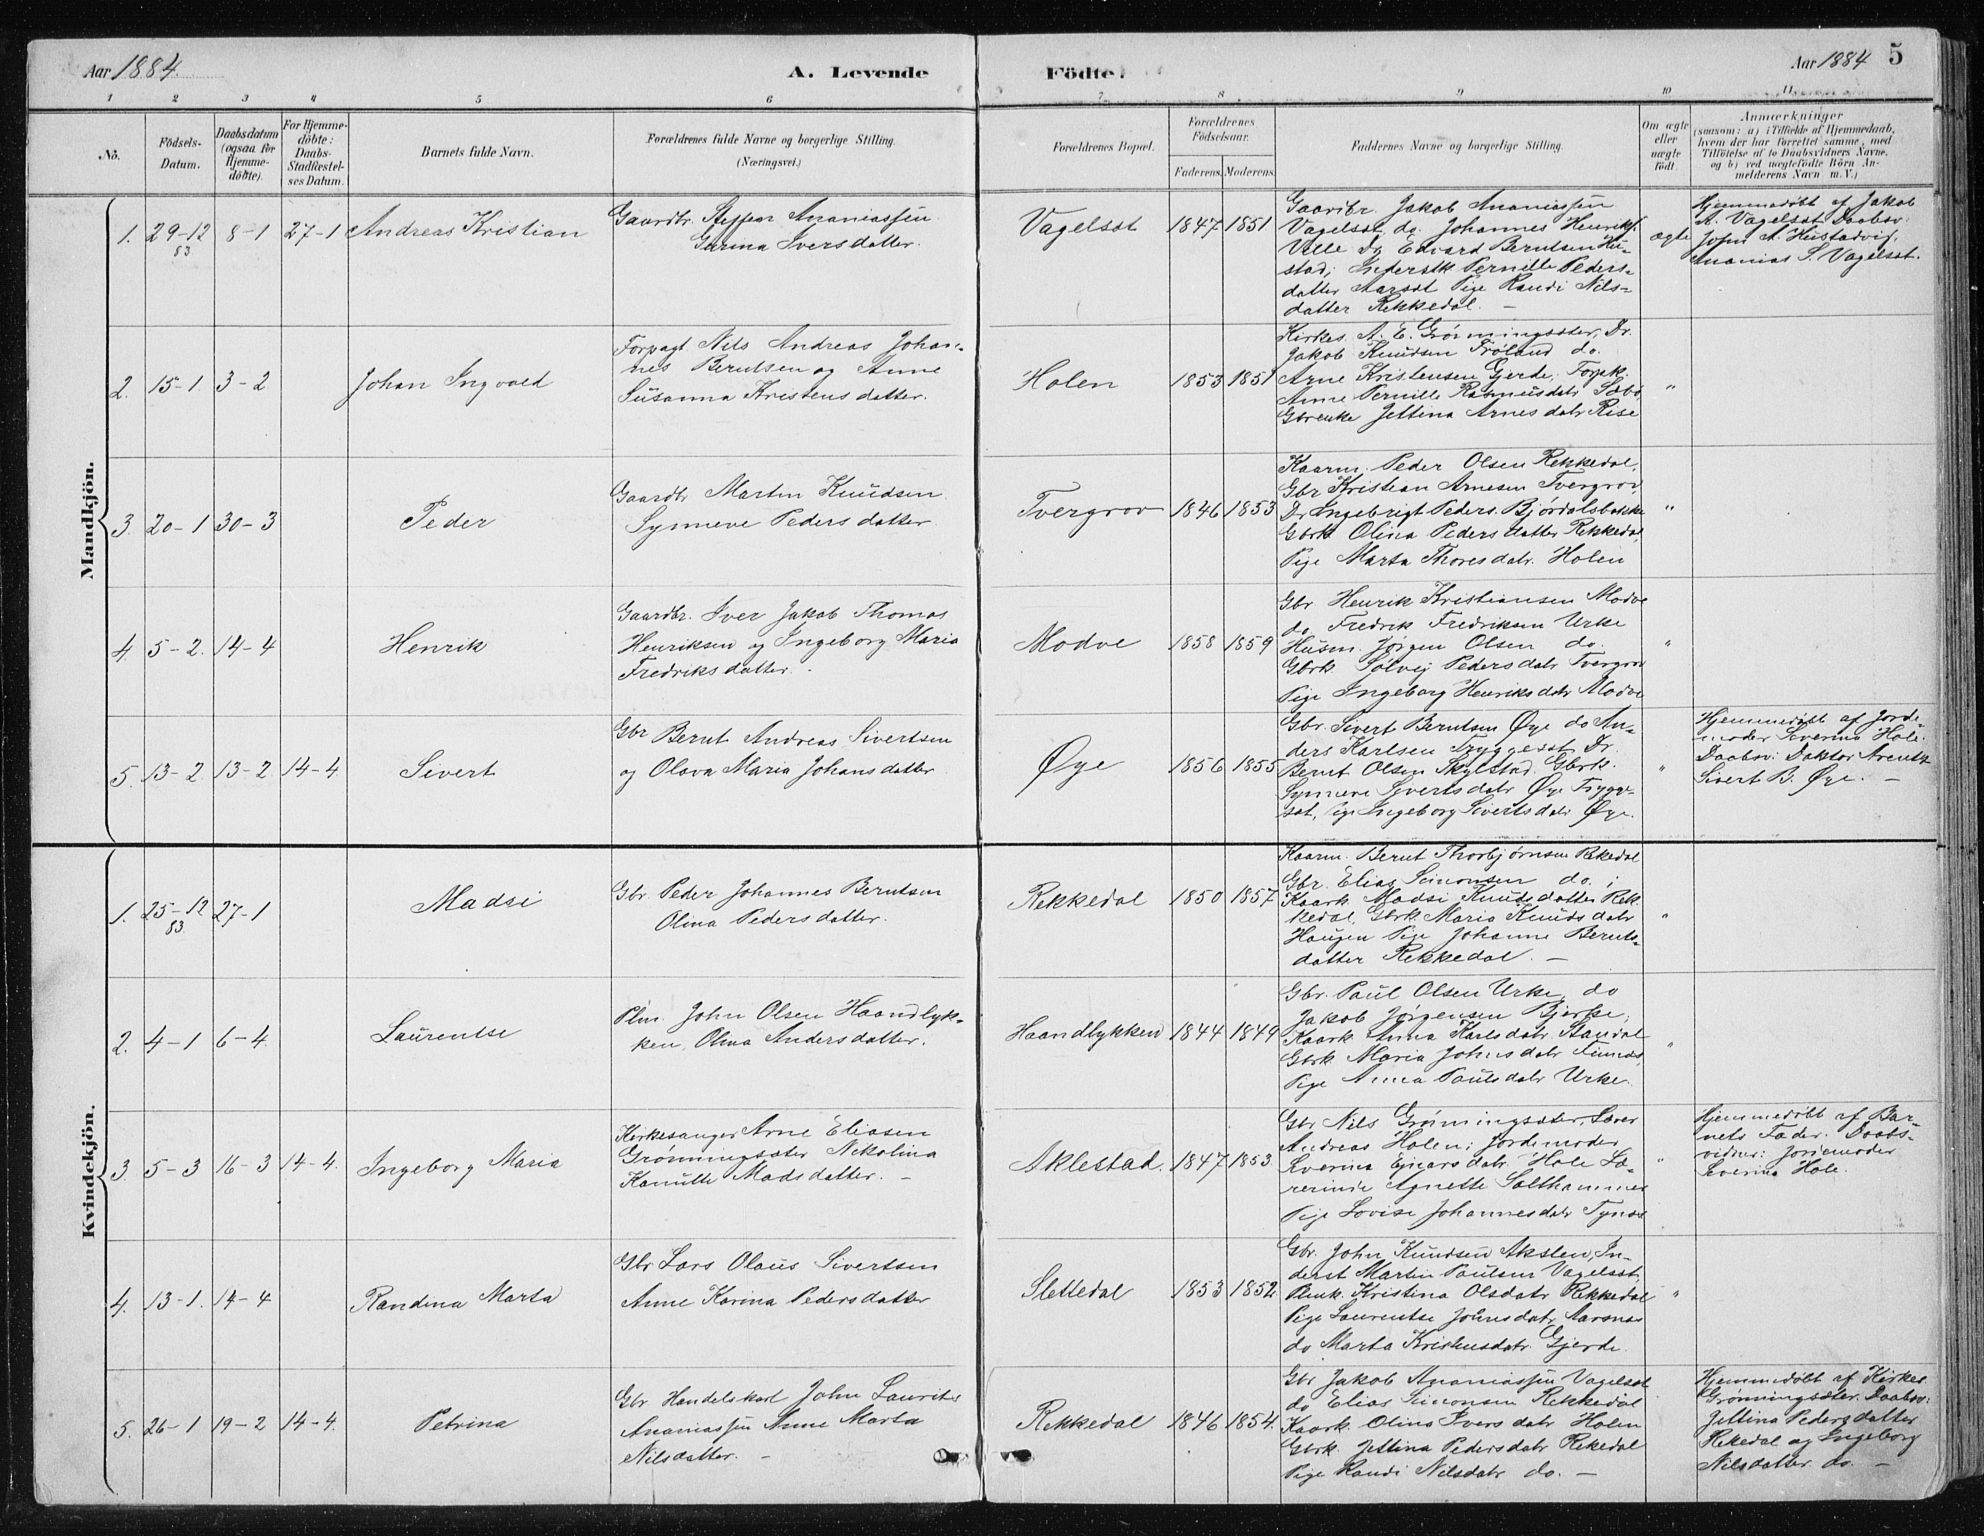 Aar 1884.
A. Levende
Födte.
Aar 1884
5
1 2 3 4 5 6 7 8 9 10 11
No.
Födsels-
Datum.
Daabsdatum
(ogsaa for
Hjemme-
döbte).
For Hjemme-
döbte:
Daabs-
Stadfæstel-
ses Datum.
Barnets fulde Navn.
Forældrenes fulde Navne og borgerlige Stilling.
(Næringsvei.)
Forældrenes Bopæl.
Forældrenes
Födselsaar.
Faderens. Moderens.
Faddernes Navne og borgerlige Stilling.
Om ægte
eller
uægte
födt.
Anmærkninger
(saasom: a) i Tilfælde af Hjemmedaab,
hvem der har forrettet samme, med
Tilföielse af to Daabsvidners Navne,
og b) ved uægtefödte Börn An-
melderens Navn m. V.)
Mandkjön.
1. 29-12 8-1 27-1 Andreas Kristian
83
Gaardbr. Steffen Ananiassen
Iversdatter.
Vagelsæt 1847 1851
Gaardbr. Jakob Ananiassen
Vagelsæt do. Johannes Henriks.
Ville Do Edvard Berntsen Hu-
stad; Pernille Peders-
datter Aarsæt Pige Randi Nils-
datter Rekkedal. —
ægte
Hjemmedöbt af Jakob
A. Vagelsæt Daabsv.
John A. Hustadvig,
Ananias S. Vagelsæt.
2. 15-1 3-2 Johan Ingvald
Forpagt. Nils Andreas Johan-
nes Berntsen og Anne
Susanna Kristensdatter.
Holen 1853 1851
Kirkes. A. E. Grønningsæter, Dr.
Jakob Knudsen Frøland do.
Arne Kristensen Gjerde, Forpk.
Anne Pernille Rasmusdatr Sæbø
Gbrenke Jettina Arnesdatr Rise
"
3. 20-1 30-3 Peder
Gaardbr Martin Knudsen
Synneve Pedersdatter
Tvergrov 1846 1853
Kaarm. Peder Olsen Rekkedal,
Gbr Kristian Arnesen Tvergrov,
Dr Ingebrigt Peders. Bjørdalsbakke
Gbrk Olina Pedersdatter Rekkedal,
Pige Marta Thoresdatr. Holen
"
4. 5-2. 14-4 Henrik
Gaardbr. Iver Jakob Thomas
Henriksen og Ingeborg Maria
Fredriksdatter.
Modve 1858 1859
Gbr Henrik Kristiansen Modve
do Fredrik Fredriksen Urke
Husm. Jørgen Olsen do.
Gbrk. Sølvej Pedersdatr Tvergrov
Pige Ingeborg Henriksdatr Modve
"
5. 13-2 13-2 14-4 Sivert
Gbr Bernt Andreas Sivertsen
og Olava Maria Johansdatter
Øye 1856 1855
Gbr. Sivert Berntsen Øye do An-
ders Karlsen Tryggesæt Dr.
Bernt Olsen Skylstad. Gbrk.
Synneve Sivertsdatr Øye Trygge-
sæt, Pige Ingeborg Sivertsdatr Øye.
"
Hjemmedöbt af Jorde-
moder Severina Hole.
Daabsv. Doktor Arentz
Sivert B. Øye. —
Kvindekjön.
1. 25-12 27-1 Madsi
83
Gbr. Peder Johannes Berntsen
Olina Pedersdatter.
Rekkedal 1850 1857
Kaarm. Bernt Thorbjørnsen Rekedal
Gbr. Elias Simonsen do.;
Kaark. Madsi Knudsdatter Rek-
kedal, Gbrk. Maria Knudsdatr
Haugen Pige Johanne Bernts-
datter Rekkedal. —
"
2. 4-1 6-4 Laurentse
Plm. John Olsen Haandlyk-
ken, Olina Andersdatter.
Haandlykken 1844 1849
Gbr. Paul Olsen Urke, do
Jakob Jørgensen Bjerke;
Kaark Anna Karlsdatr Standal
Gbrk. Maria Johnsdatr
Pige Anna Paulsdatr Urke.
"
3. 5-3 16-3 14-4. Ingeborg Maria
Kirkesanger Arne Eliasen
Grønningsæter Nikolina
Kanutte Madsdatter. —
Aklestad. 1847 1853.
Gbr Nils Grønningsæter, Lærer
Andreas Holen; Jordemoder
Severina Ejnarsdatr Hole Læ-
rerinde Agnette Solthammer
Pige Lovise Johannesdatr Tynes
"
Hjemmedöbt af Bar-
nets Fader. Daabs-
vidner: Jordemoder
Severina Hole.
4. 13-1. 14-4 Randina Marta
Gbr Lars Olaus Sivertsen
Anne Karina Pedersdatter
Slettedal 1853 1852.
Gbr. John Knudsen Akslen, In-
derst Martin Paulsen Vagelsæt,
Kristina Olsdatr Rekkedal
Pige Laurentse Johnsdatr, Aarsnes
do Marta Kristensdatr. Gjerde.
"
5. 26-1 19-2 14-4. Petrina
Gbr Handelskarl John Laurits
Ananiassen Anne Marta
Nilsdatter. —
Rekkedal 1846 1854.
Gbr Jakob Ananiassen Vagelsæt
do Elias Simonsen Rekkedal
Kaark. Olina Iversdatr Holen
Gbrk. Jettina Pedersdatr Rekedal
Pige Randi Nilsdatr do. —
Hjemmedöbt af Kirkes.
Grønningsæter. Daabsv:
Jettina Pedersdatter
Rekedal og Ingeborg
Nilsdatter do. —